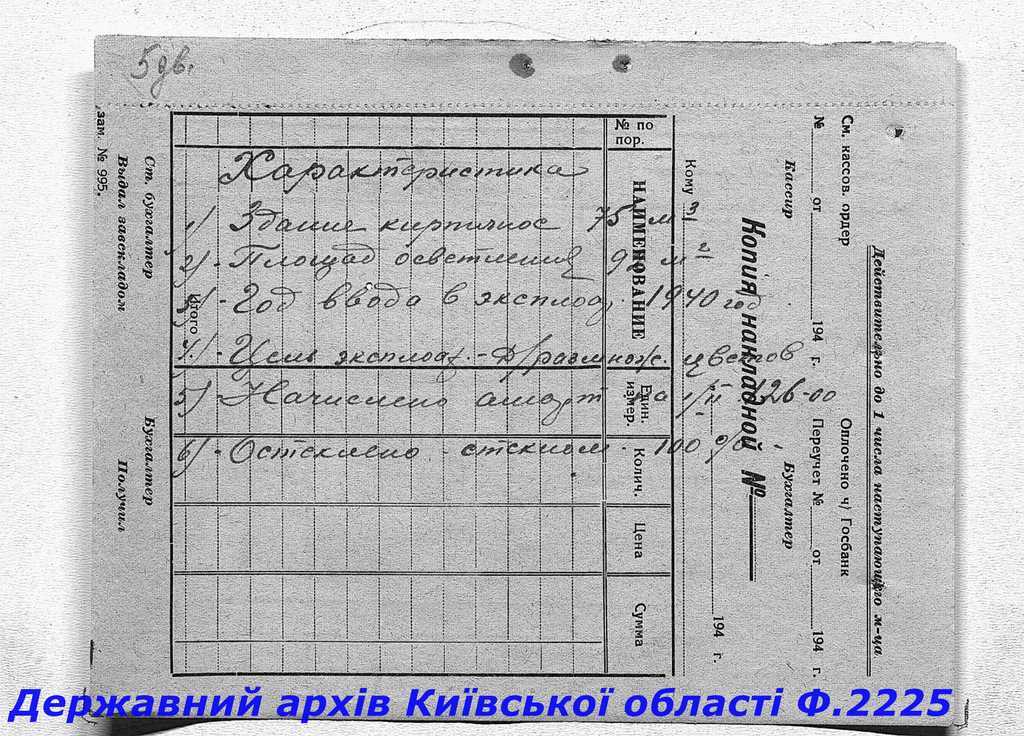 5 дв.
Характеристика
1) Здание кирпичное 75 м³
2) - Площад освещения 92 м²
3) - Год ввода в эксплоат. 1940 год
4) - Цель эксплоат. - д/размнож. цветов
5) - Начислено аморт на 1/II 126-00
6) - Остеклено стеклом - 100 %
№ по пор.
НАИМЕНОВАНИЕ
Един. измер.
Колич.
Цена
Сумма
Итого
Кому
194 г.
Копия накладной №
Кассир Бухгалтер
№ от 194 г. Переучет № от 194 г.
См. кассов. ордер Оплочено ч/ Госбанк
Действительно до 1 числа наступающего м-ца
Ст. бухгалтер Бухгалтер
Выдал завскладом Получил
зам. № 995.
Державний архів Київської області Ф.2225